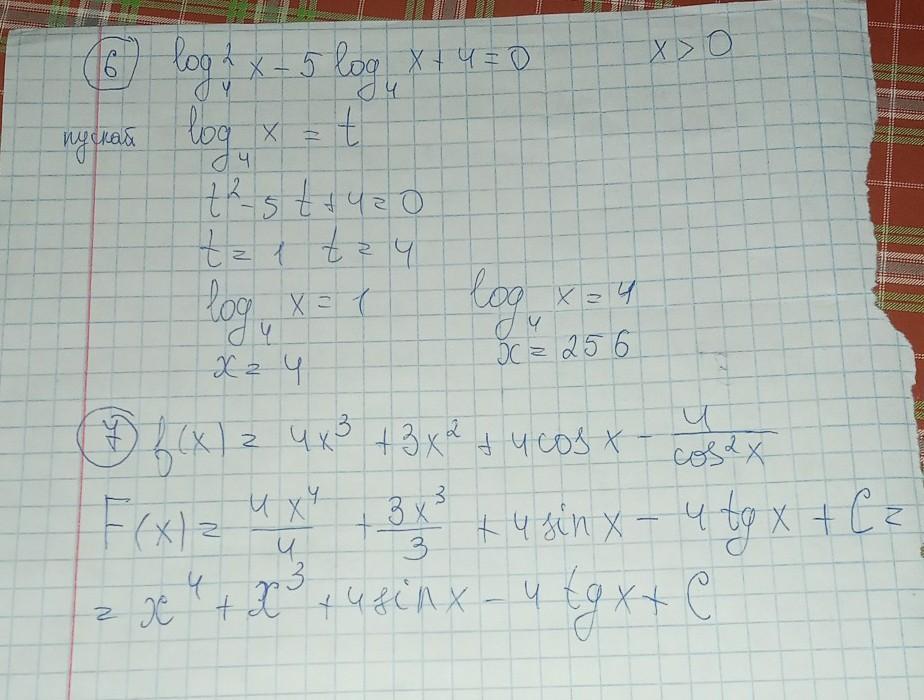 6 log₄² x − 5 log₄ x + 4 = 0 x > 0
пускай log₄ x = t
t² − 5t + 4 = 0
t = 1 t = 4
log₄ x = 1 log₄ x = 4
x = 4 x = 256
7 f(x) = 4x³ + 3x² + 4cos x − 4/cos²x
F(x) = 4x⁴/4 + 3x³/3 + 4sin x − 4 tg x + C =
= x⁴ + x³ + 4sin x − 4 tg x + C